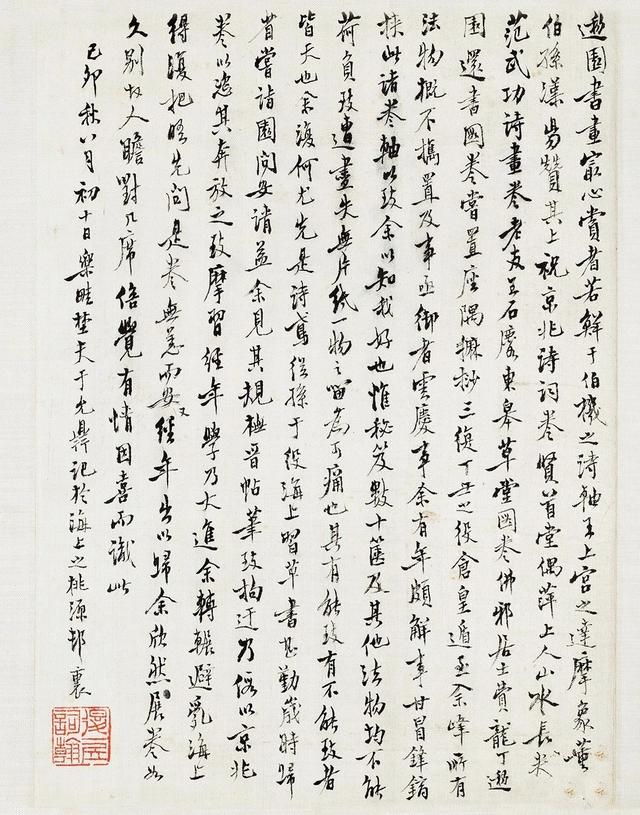 遯園書畫最心賞者若鮮于伯機之詩軸王上宮之達摩象董
伯孫漢陽贊其上祝京兆詩詞卷賢首堂偶萍上人山水長卷
范武功詩畫卷老友王石廔東皋草堂圖卷佛邪居士賞龍丁遯
園還書圖卷嘗置座隅摩抄三復丁丑之役倉皇遁丞余峰所有
法物概不攜置及事亟御者雲慶事余有年頗解事甘冒鋒鏑
挾此諸卷軸以致余以知我好也惟秘笈數十篋及其他法物均不能
荷負致遭盡失無片紙一物之留為可痛也其有能致有不能致者
皆天也余復何尤先是詩鳶從孫于役海上習草書甚勤歲時歸
省嘗詣園問安請益余見其規橅晉帖筆致拘迂乃假以京兆
卷以恣其奔放之致摩習經年學乃大進余轉輾避亂海上
得復把晤先問是卷無恙而安又經年出以歸余欣然展卷如
久別故人瞻對几席倍覺有情因喜而識此
己卯秋八月初十日樂畦埜夫于允鼎記於海上之桃源邨裏